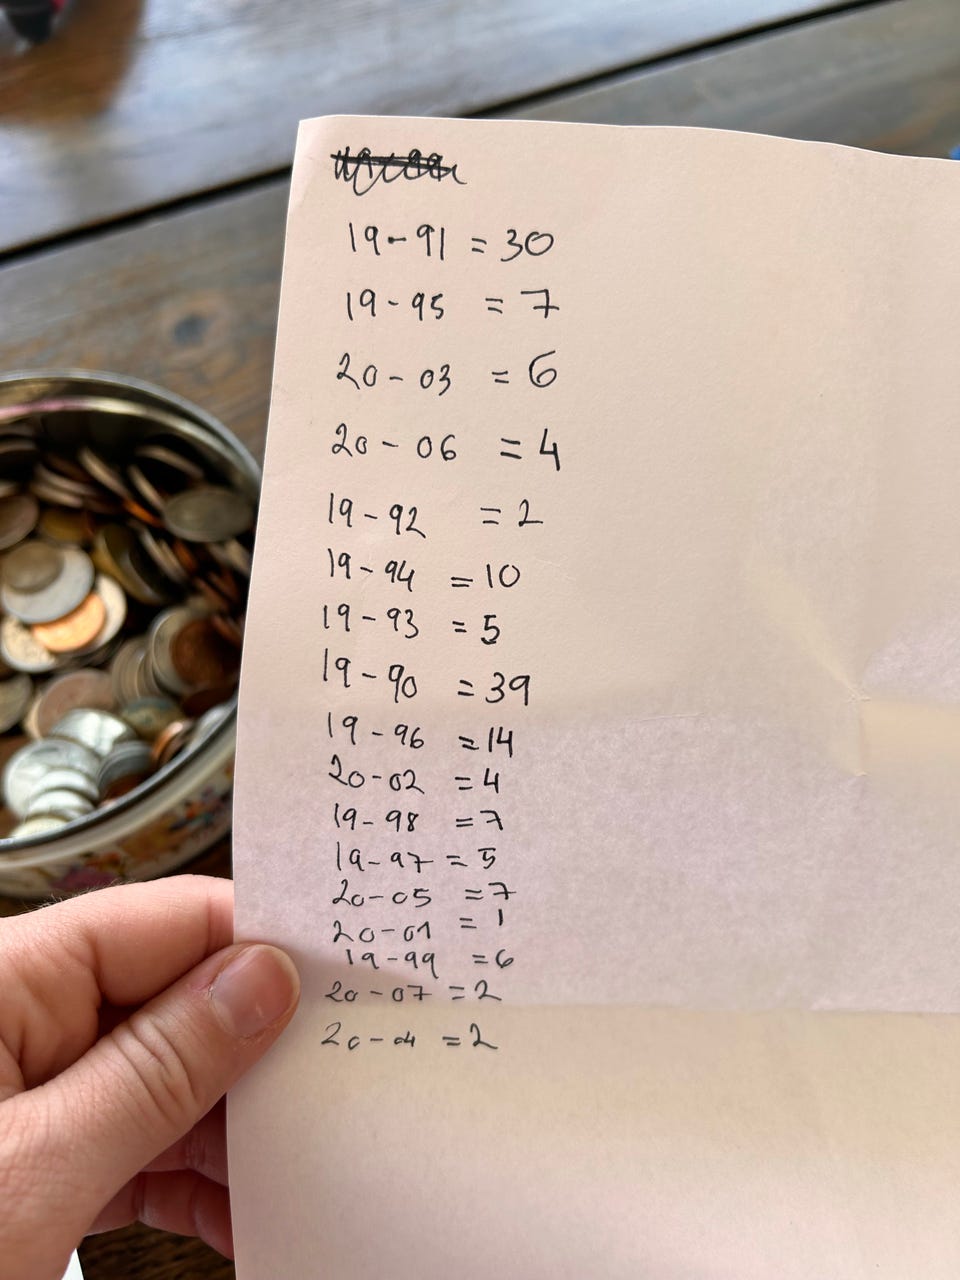 19-91 = 30
19-95 = 7
20-03 = 6
20-06 = 4
19-92 = 2
19-94 = 10
19-93 = 5
19-90 = 39
19-96 = 14
20-02 = 4
19-98 = 7
19-97 = 5
20-05 = 7
20-01 = 1
19-99 = 6
20-07 = 2
20-04 = 2